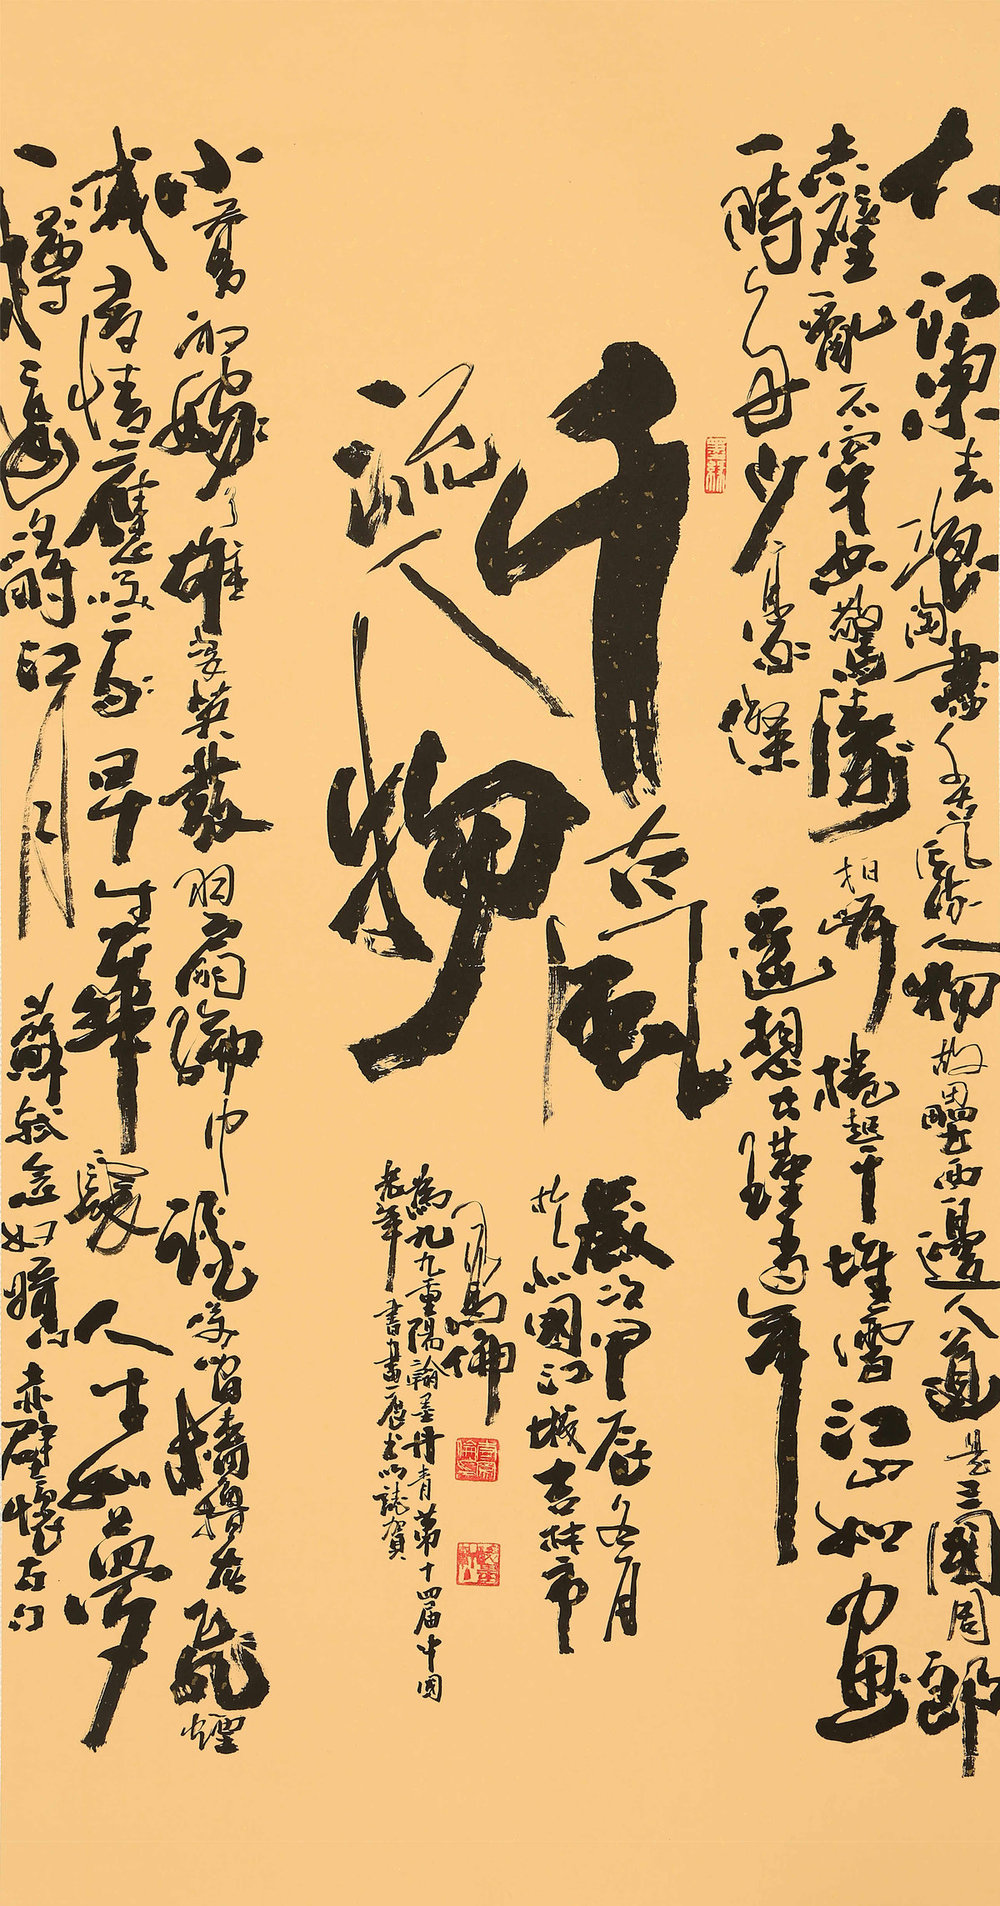 大江東去浪淘盡千古風流人物故壘西邊人道是三國周郎
赤壁亂石穿空驚濤拍岸捲起千堆雪江山如畫
一時多少豪傑 遙想公瑾當年
千古風
流人物
歲次甲辰冬月
於北國江城吉林市
為九九重陽翰墨丹青第十四屆中國
老年書畫展書以誌賀
小喬初嫁了雄姿英發羽扇綸巾談笑間檣櫓灰飛煙
滅 多情應笑我早生華髮人生如夢
一樽還酹江月 蘇軾念奴嬌赤壁懷古